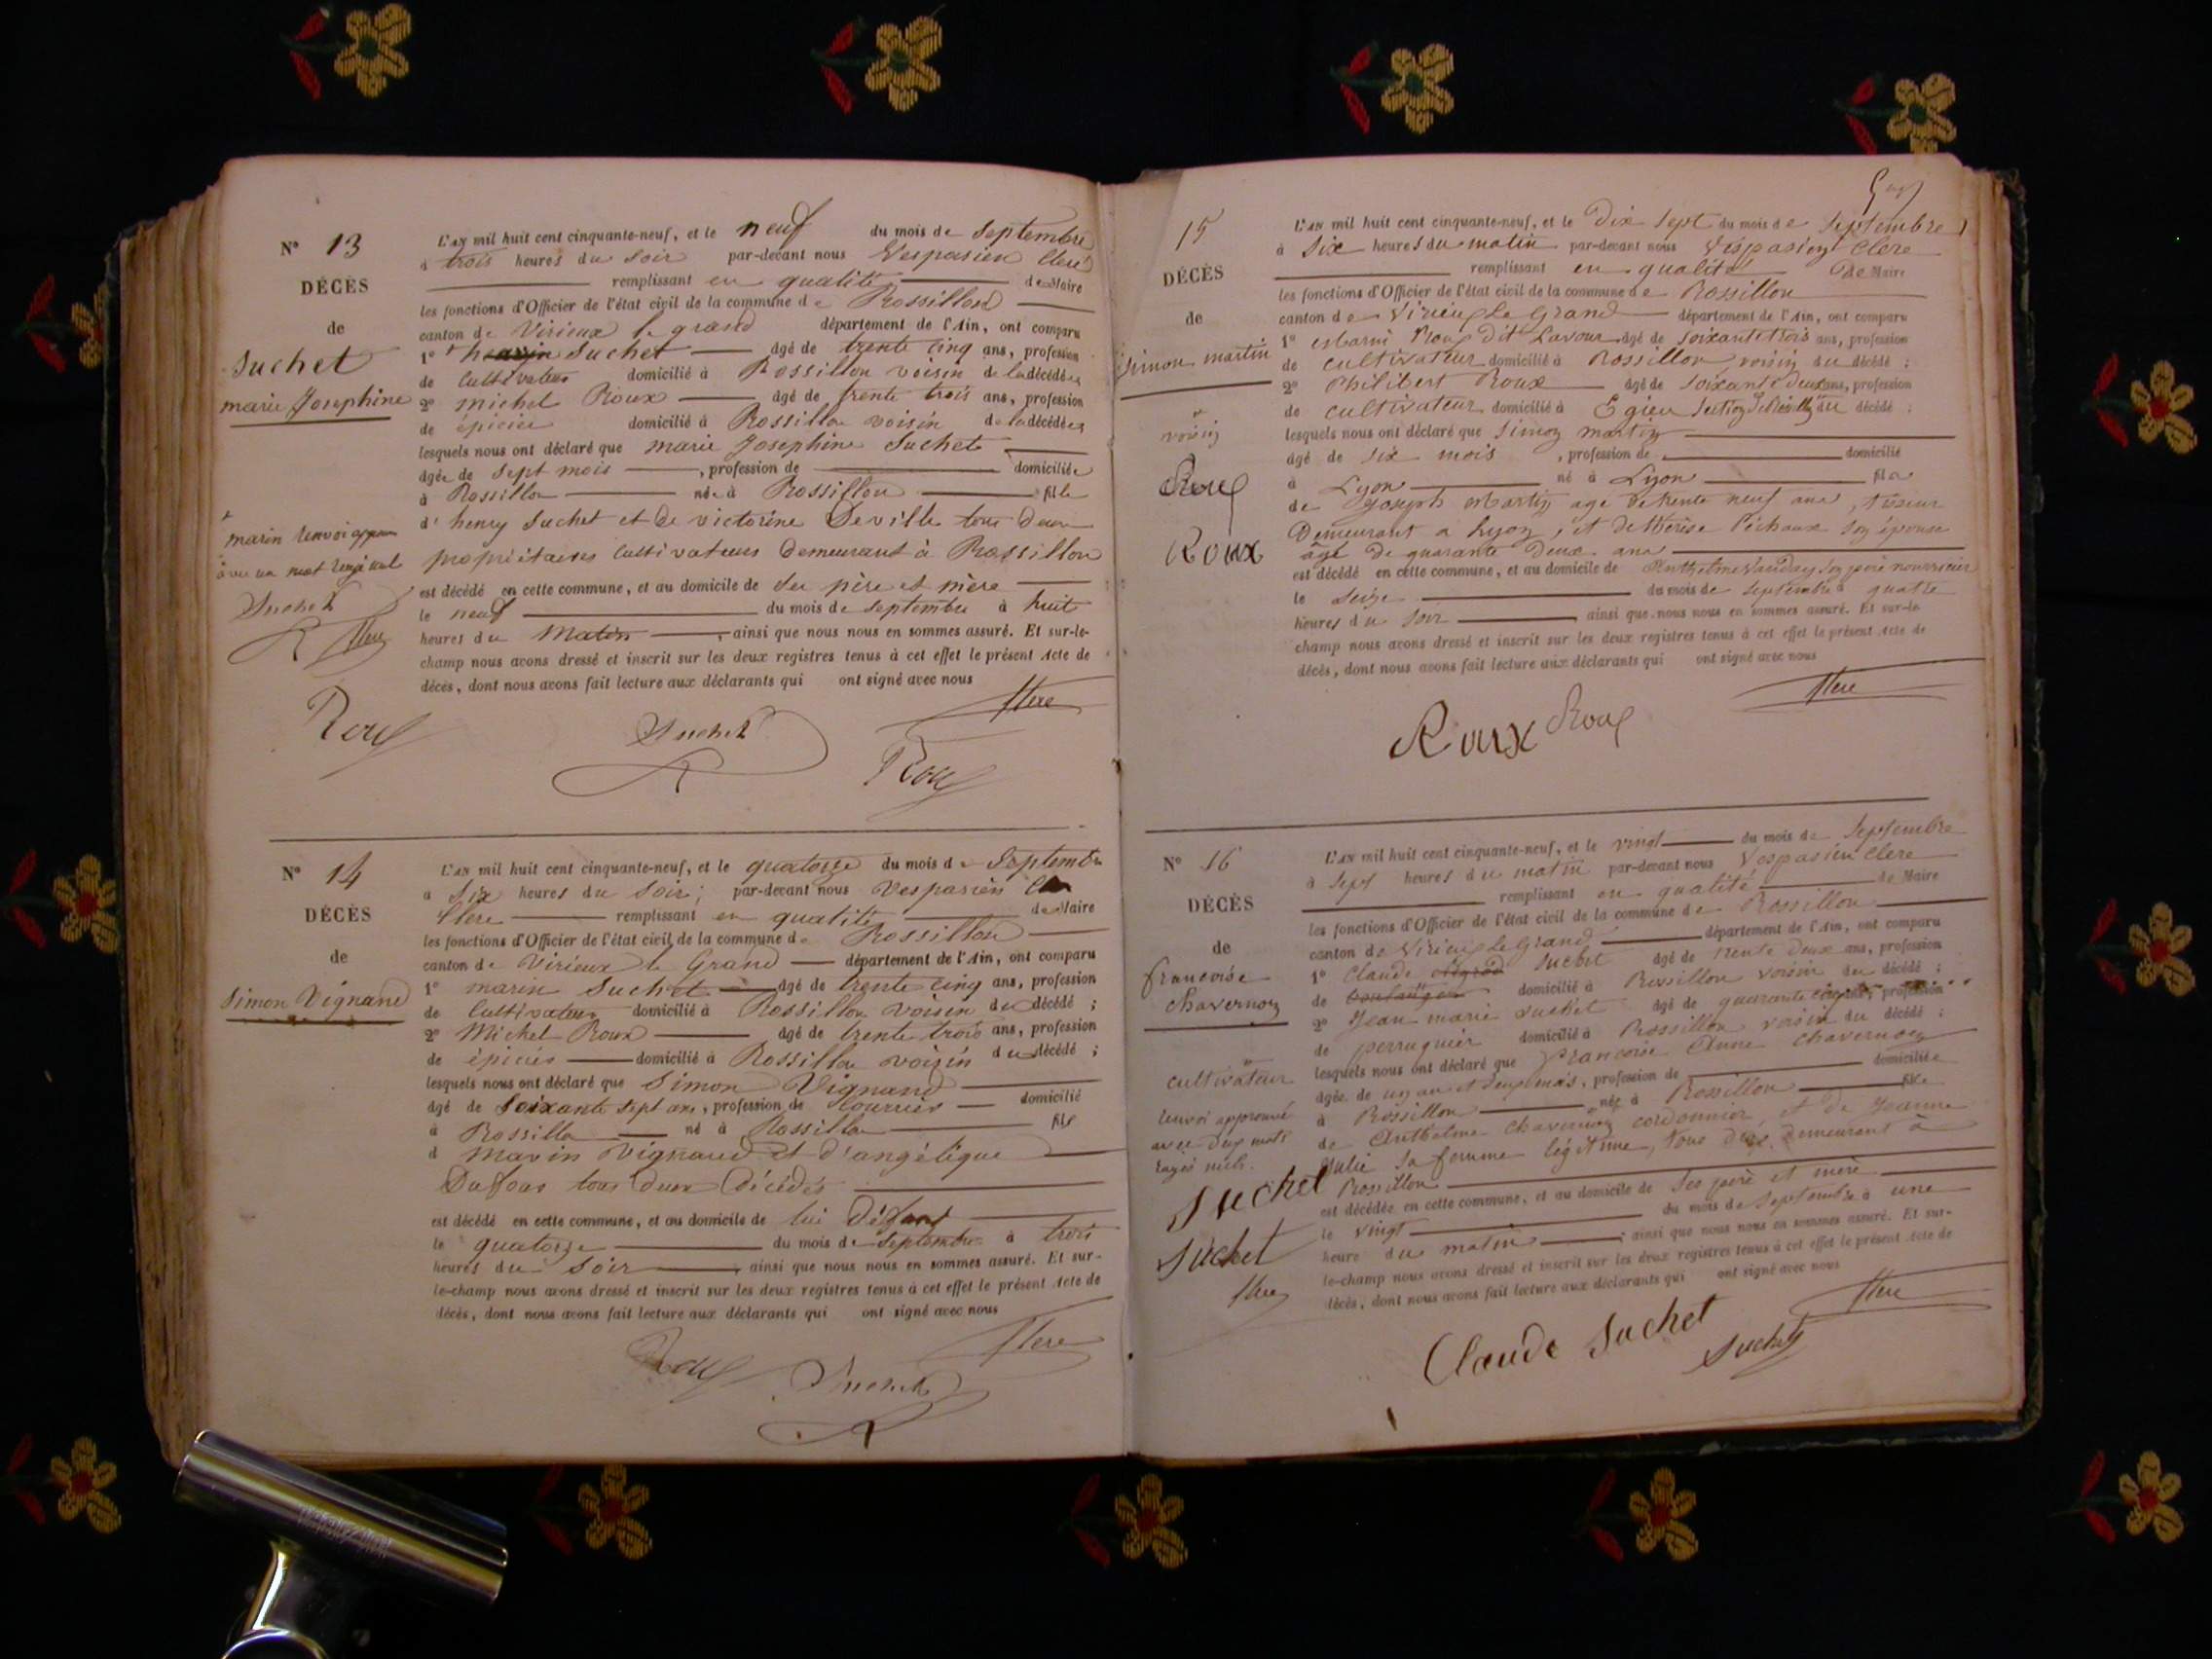 N° 13
DÉCÈS
de
Suchet
marie Josephine
L'AN mil huit cent cinquante-neuf, et le neuf du mois de Septembre
à trois heures du soir par-devant nous Vespasien Clerc
remplissant en qualité de Maire
les fonctions d'Officier de l'état civil de la commune de Rossillon
canton de Virieux le grand département de l'Ain, ont comparu
1° Suchet âgé de trente cinq ans, profession
de Cultivateur domicilié à Rossillon voisin de la décédée
2° michel Roux âgé de trente trois ans, profession
de épicier domicilié à Rossillon voisin de la décédée
lesquels nous ont déclaré que marie Josephine Suchet
âgée de sept mois, profession de domiciliée
à Rossillon née à Rossillon fille
d'henry Suchet et de victorine Deville tous deux
propriétaires Cultivateurs demeurant à Rossillon
est décédé en cette commune, et au domicile de ses père et mère
le neuf du mois de Septembre à huit
heures du Matin, ainsi que nous nous en sommes assuré. Et sur-le-
champ nous avons dressé et inscrit sur les deux registres tenus à cet effet le présent Acte de
décès, dont nous avons fait lecture aux déclarants qui ont signé avec nous
marin Renvoi approuvé
avec un mot rayé nul
Suchet
Clerc
Roux
Suchet
Clerc
Roux
N° 14
DÉCÈS
de
Simon Vignand
L'AN mil huit cent cinquante-neuf, et le quatorze du mois de Septembre
à Six heures du Soir; par-devant nous Vespasien
Clerc remplissant en qualité de Maire
les fonctions d'Officier de l'état civil de la commune de Rossillon
canton de Virieux le Grand département de l'Ain, ont comparu
1° marin Suchet âgé de trente cinq ans, profession
de Cultivateur domicilié à Rossillon voisin du décédé;
2° Michel Roux âgé de trente trois ans, profession
de épicier domicilié à Rossillon voisin du décédé;
lesquels nous ont déclaré que Simon Vignand
âgé de Soixante sept ans, profession de Courrier domicilié
à Rossillon né à Rossillon fils
d Marin Vignand et d'angélique
Dufour tous deux Décédés
est décédé en cette commune, et au domicile de lui Défunt
le quatorze du mois de Septembre à trois
heures du Soir, ainsi que nous nous en sommes assuré. Et sur-
le-champ nous avons dressé et inscrit sur les deux registres tenus à cet effet le présent Acte de
décès, dont nous avons fait lecture aux déclarants qui ont signé avec nous
Clerc
Roux
Suchet
15
DÉCÈS
de
Simon martin
L'AN mil huit cent cinquante-neuf, et le Dix Sept du mois de Septembre
à Six heures du matin par-devant nous Vespasien Clerc
remplissant en qualité de Maire
les fonctions d'Officier de l'état civil de la commune de Rossillon
canton de Virieu le Grand département de l'Ain, ont comparu
1° Roux dit Lavour âgé de soixante trois ans, profession
de cultivateur domicilié à Rossillon voisin du décédé;
2° Philibert Roux âgé de soixante deux ans, profession
de cultivateur domicilié à Egieu du décédé;
lesquels nous ont déclaré que Simon martin
âgé de six mois, profession de domicilié
à Lyon né à Lyon fils
de Joseph Martin agé de trente neuf ans, tisseur
Demeurant a Lyon, et de therèse Péchoux son épouse
âgé de quarante Deux ans
est décédé en cette commune, et au domicile de Anthelme son père nourricier
le seize du mois de Septembre à quatre
heures du Soir, ainsi que nous nous en sommes assuré. Et sur-le
champ nous avons dressé et inscrit sur les deux registres tenus à cet effet le présent Acte de
décès, dont nous avons fait lecture aux déclarants qui ont signé avec nous
voisin
Roux
Roux
Clerc
Roux Roux
N° 16
DÉCÈS
de
francoise
chavernoz
L'AN mil huit cent cinquante-neuf, et le vingt du mois de Septembre
à sept heures du matin par-devant nous Vespasien Clerc
remplissant en qualité de Maire
les fonctions d'Officier de l'état civil de la commune de Rossillon
canton de Virieu le Grand département de l'Ain, ont comparu
1° Claude Suchet âgé de trente deux ans, profession
de boulanger domicilié à Rossillon voisin du décédé;
2° Jean marie suchet âgé de quarante cinq ans, profession
de perruquier domicilié à Rossillon voisin du décédé;
lesquels nous ont déclaré que francoise Anne chavernoz
âgée de un an et deux mois, profession de domiciliée
à Rossillon née à Rossillon fille
de Anthelme Chavernoz cordonnier, et de Jeanne
Julie sa femme légitime, tous deux demeurant à
Rossillon
est décédée en cette commune, et au domicile de ses père et mère
le vingt du mois de Septembre à une
heure du matin; ainsi que nous nous en sommes assuré. Et sur-
le-champ nous avons dressé et inscrit sur les deux registres tenus à cet effet le présent Acte de
décès, dont nous avons fait lecture aux déclarants qui ont signé avec nous
cultivateur
Renvoi approuvé
avec deux mots
rayés nuls.
Suchet
Suchet
Clerc
Clerc
Claude Suchet
Suchet